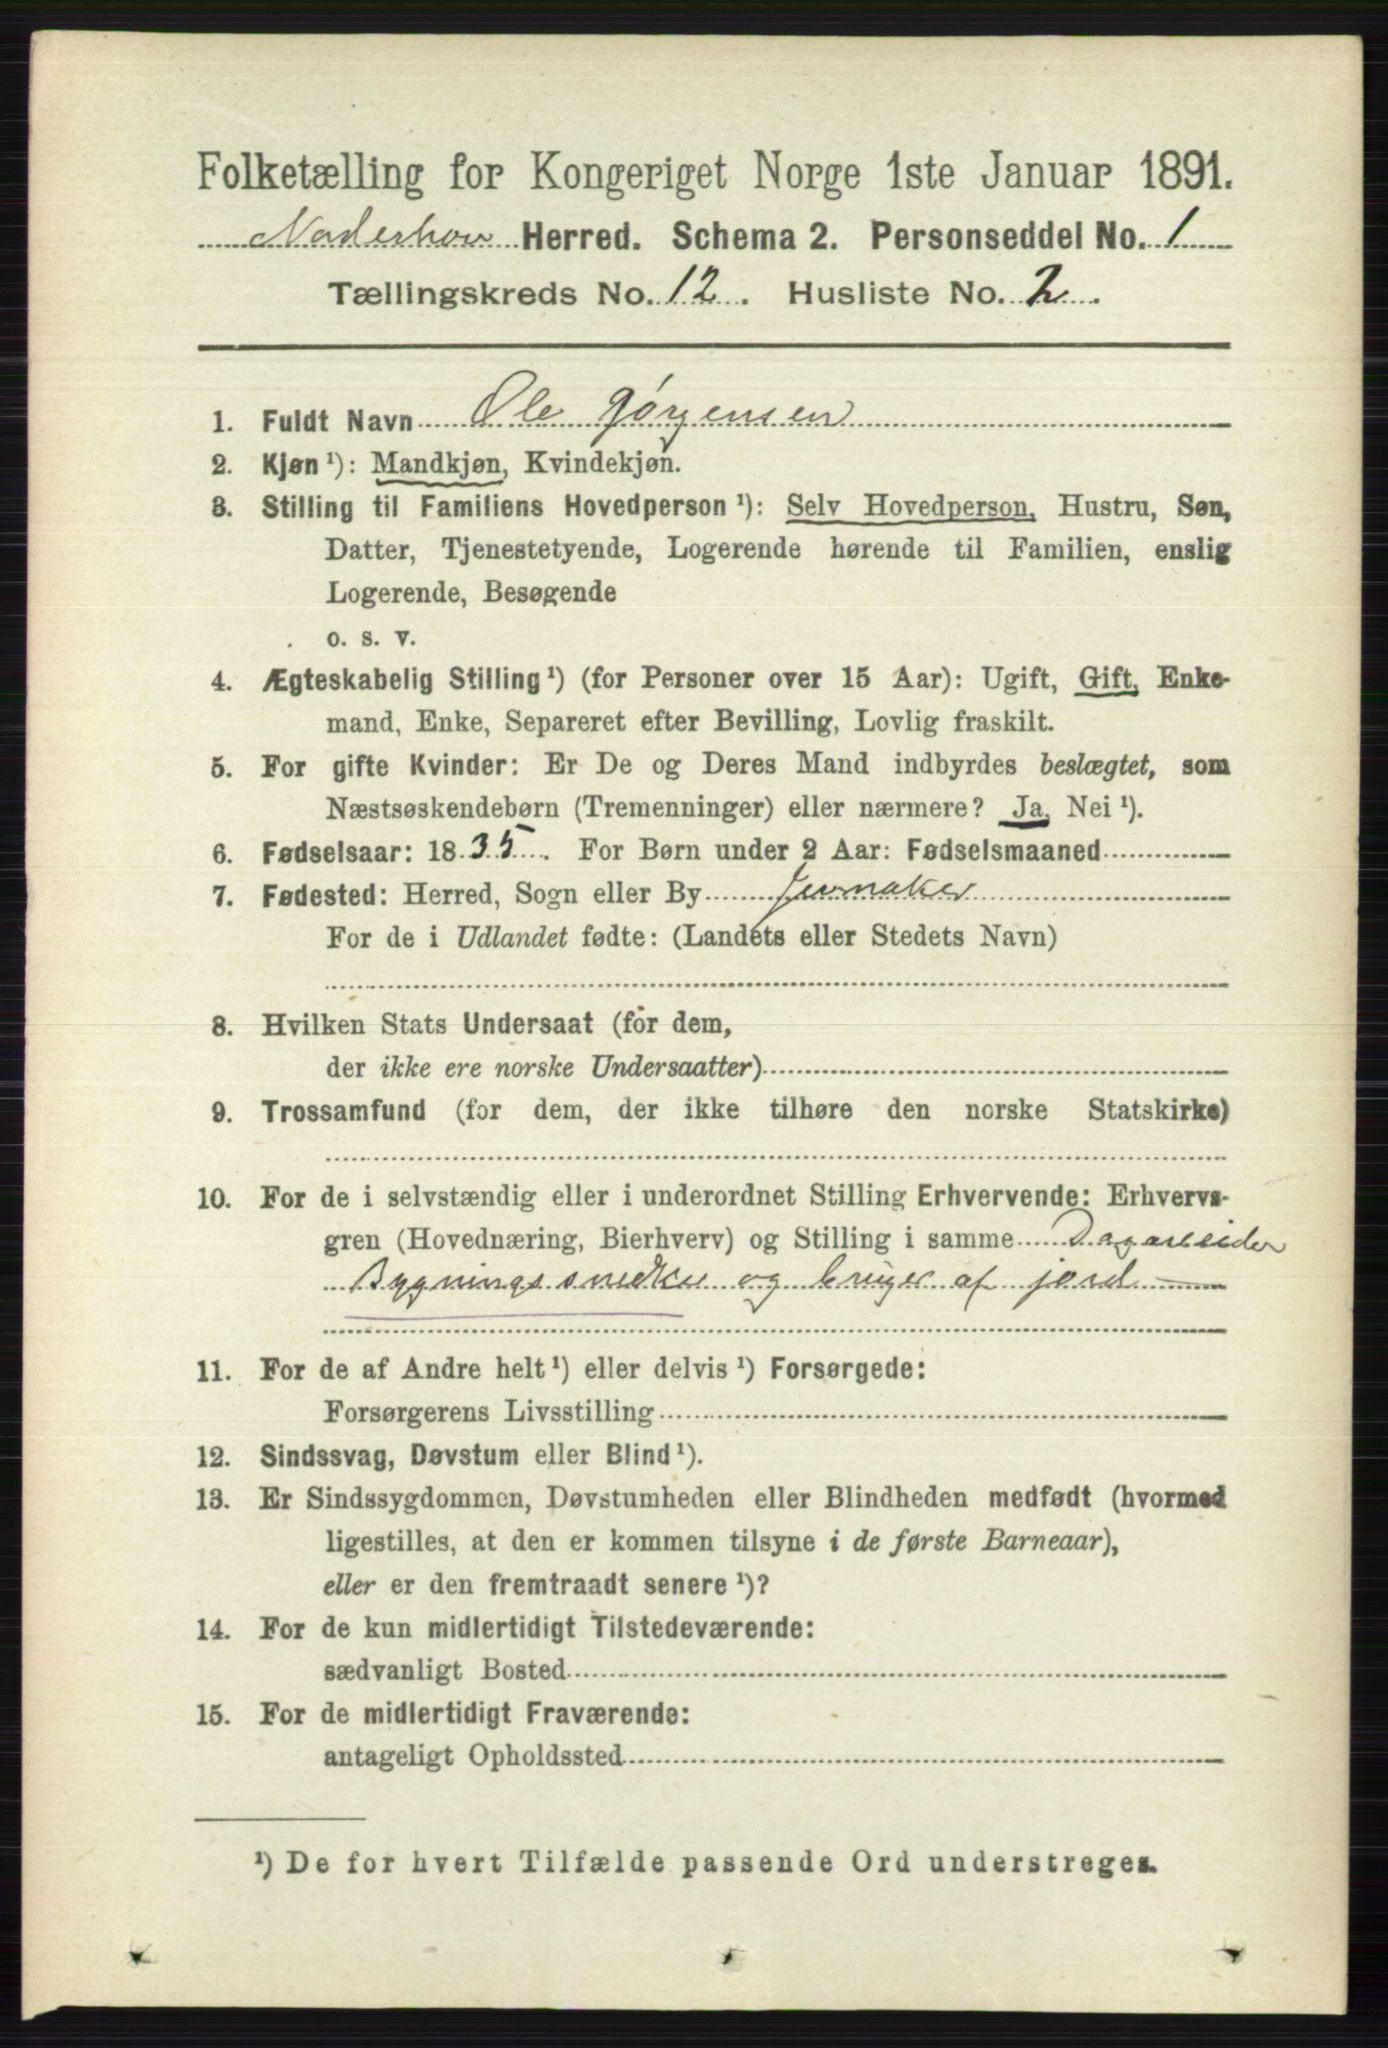 Folketælling for Kongeriget Norge 1ste Januar 1891.
Norderhov Herred. Schema 2. Personseddel No. 1
Tællingskreds No. 12. Husliste No. 2.
1. Fuldt Navn Ole Jørgensen
2. Kjøn ¹): Mandkjøn, Kvindekjøn.
3. Stilling til Familiens Hovedperson ¹): Selv Hovedperson, Hustru, Søn,
Datter, Tjenestetyende, Logerende hørende til Familien, enslig
Logerende, Besøgende
o. s. v.
4. Ægteskabelig Stilling ¹) (for Personer over 15 Aar): Ugift, Gift, Enke-
mand, Enke, Separeret efter Bevilling, Lovlig fraskilt.
5. For gifte Kvinder: Er De og Deres Mand indbyrdes beslægtet, som
Næstsøskendebørn (Tremenninger) eller nærmere? Ja, Nei ¹).
6. Fødselsaar: 1835. For Børn under 2 Aar: Fødselsmaaned
7. Fødested: Herred, Sogn eller By Jevnaker
For de i Udlandet fødte: (Landets eller Stedets Navn)
8. Hvilken Stats Undersaat (for dem,
der ikke ere norske Undersaatter)
9. Trossamfund (for dem, der ikke tilhøre den norske Statskirke)
10. For de i selvstændig eller i underordnet Stilling Erhvervende: Erhvervs-
gren (Hovednæring, Bierhverv) og Stilling i samme Dagarbeider
Bygningssnedker og bruger af jord
11. For de af Andre helt ¹) eller delvis ¹) Forsørgede:
Forsørgerens Livsstilling
12. Sindssvag, Døvstum eller Blind ¹).
13. Er Sindssygdommen, Døvstumheden eller Blindheden medfødt (hvormed
ligestilles, at den er kommen tilsyne i de første Barneaar),
eller er den fremtraadt senere ¹)?
14. For de kun midlertidigt Tilstedeværende:
sædvanligt Bosted
15. For de midlertidigt Fraværende:
antageligt Opholdssted
¹) De for hvert Tilfælde passende Ord understreges.